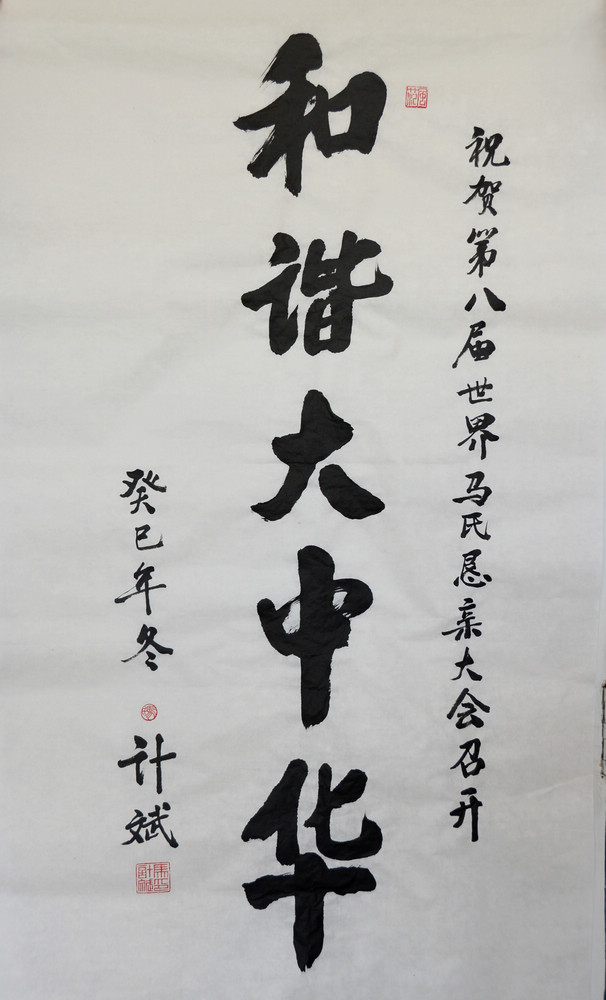 祝贺第八届世界马氏恳亲大会召开
和谐大中华
癸巳年冬
计斌